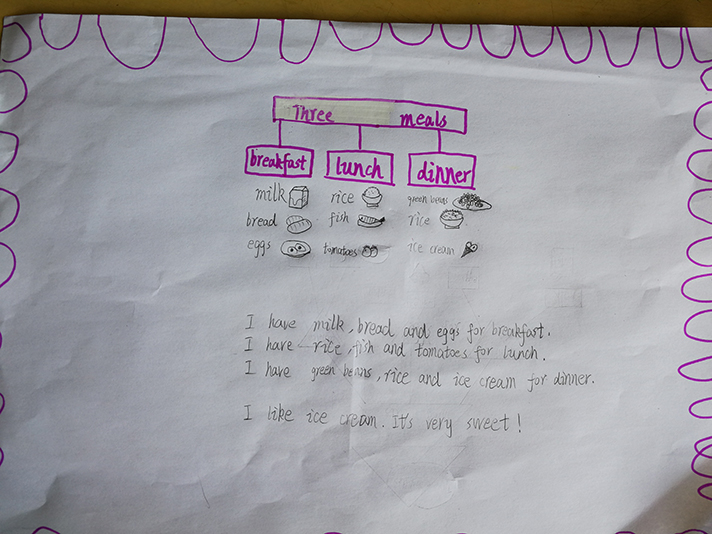 Three meals
breakfast lunch dinner
milk rice green beans
bread fish rice
eggs tomatoes ice cream
I have milk, bread and eggs for breakfast.
I have rice, fish and tomatoes for lunch.
I have green beans, rice and ice cream for dinner.
I like ice cream. It's very sweet!